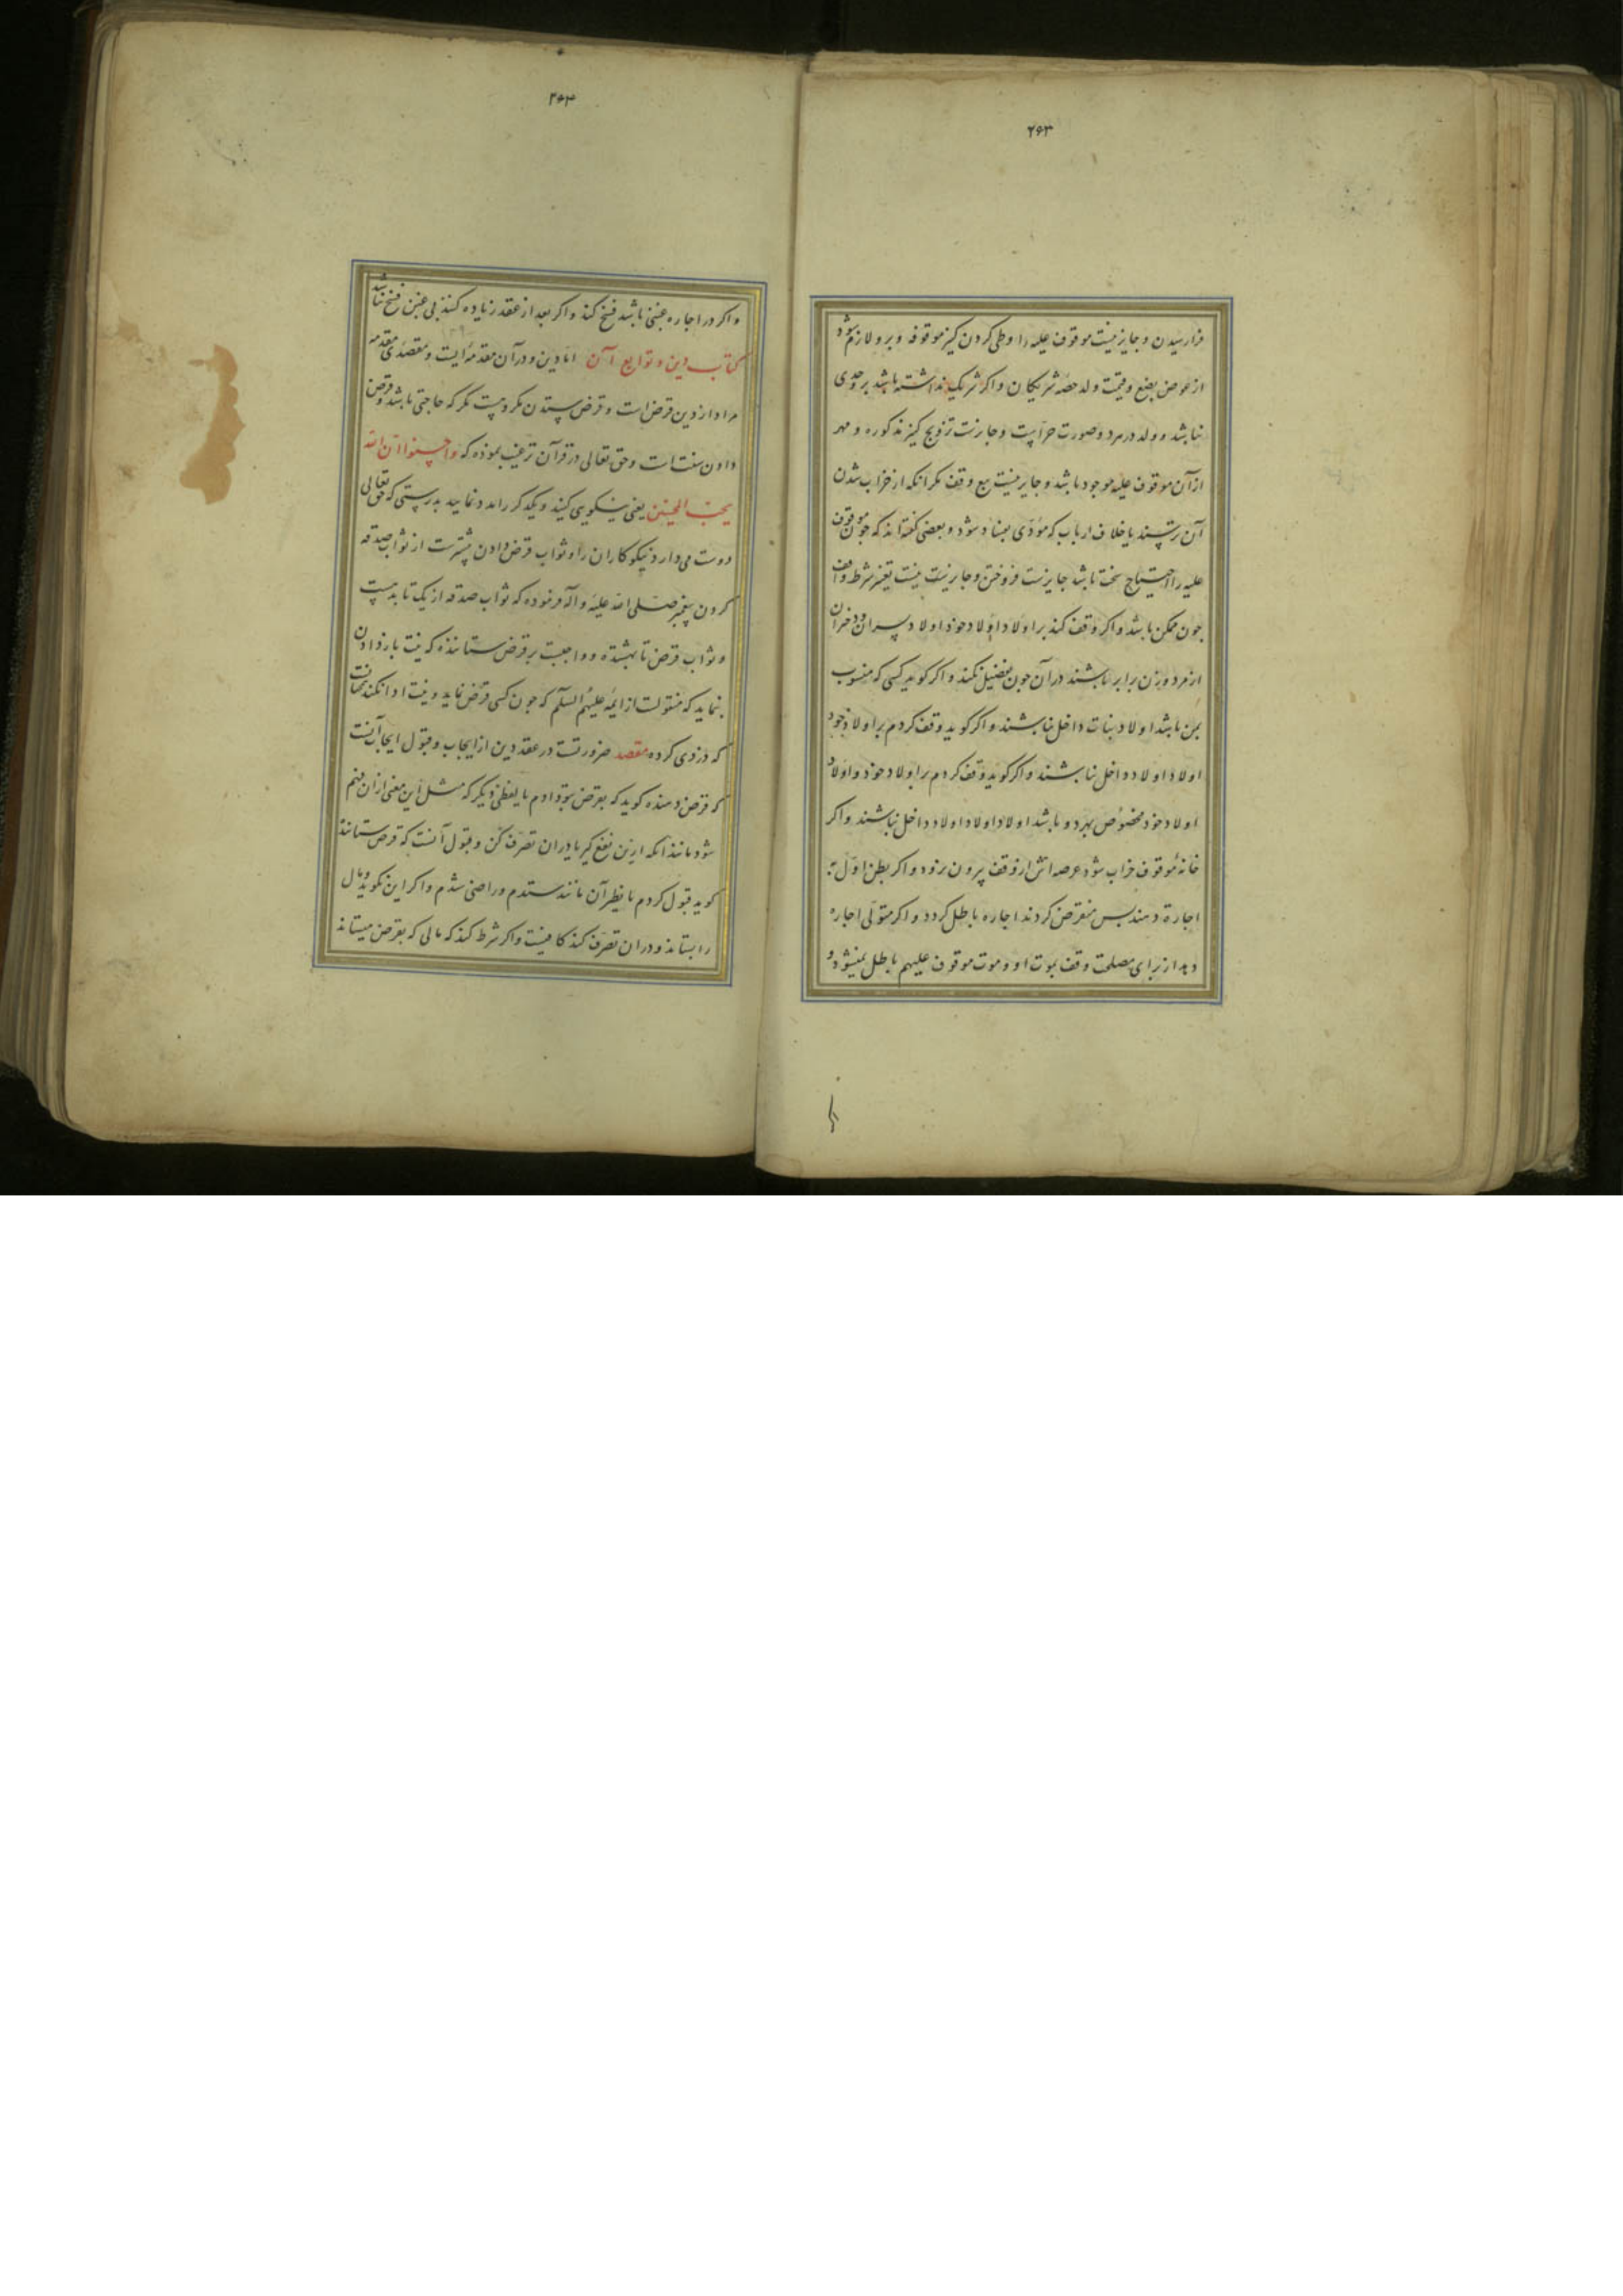 ۲۶۳
فرا رسیدن و جایز نیست موقوف علیه را وطی کردن کنیز موقوفه و برو لازم شود
از عوض بضع و قیمت ولد حصه شریکان و اگر شریک نداشته باشد برو حدی
نباشد و ولد در هر دو صورت حرّاست و جایزست تزویج کنیز مذکوره و مهر
ازآن موقوف علیه موجود باشد و جایز نیست بیع وقف مکر آنکه از خراب شدن
آن ترسند یا خلاف ارباب که مؤدّی بفساد شود و بعضی کفته اند که چون موقوف
علیه را احتیاج سخت باشد جایزست فروختن و جایز نیست تغییر شرط واقف
چون ممکن باشد و اکر وقف کند بر اولاد اولاد خود اولاد پسران و دختران
از مرد و زن برابر باشند در آن چون تفضیل نکند و اکر کوید کسی که منسوب
بمن باشد اولاد بنات داخل نباشند و اکر کوید وقف کردم بر اولاد خود
اولاد اولاد داخل نباشند و اکر کوید وقف کردم بر اولاد خود و اولاد
اولاد خود مخصوص بهر دو باشد اولاد اولاد اولاد داخل نباشند و اکر
خانهٔ موقوف خراب شود عرصه اش از وقف بیرون نرود و اکر بطن اوّل به
اجارة دهند پس منقرض کردند اجاره باطل کردد و اکر متولّی اجاره
دهد از برای مصلحت وقف بموت او و موت موقوف علیهم باطل نمیشود و
۲۶۴
و اکر در اجاره غبنی باشد فسخ کند و اکر بعد از عقد زیاده کنند بی غبن فسخ نباشد
کتاب دین و توابع آن امّا دین و در آن مقدمه ایست و مقصدی مقدمه
مراد از دین قرض است و قرض ستدن مکروهست مکر که حاجتی باشد و قرض
دادن سنّتست و حق تعالی در قرآن ترغیب نموده که واحسنوا ان الله
یحبّ المحسنین یعنی نیکویی کنید و یکدکر را مدد نمایید بدرستی که حق تعالی
دوست می دارد نیکو کاران را و ثواب قرض دادن بیشترست از ثواب صدقه
کردن پیغمبر صلی الله علیه و آله فرموده که ثواب صدقه از یک تا بدهست
و ثواب قرض تا بهشتده و واجبست بر قرض ستاننده که نیت باز دادن
بنماید که منقولست از ایمّه علیهم السلم که چون کسی قرض نماید و نیت ادا نکند همانست
که دزدی کرده مقصد ضرورتست در عقد دین از ایجاب و قبول ایجاب آنست
که قرض دهنده کوید که بقرض بتو دادم یا بلفظی دیکر که مثل این معنی از آن فهم
شود مانند آنکه ازین نفع کیر یا در ان تصرّف کن و قبول آنست که قرض ستاننده
کوید قبول کردم یا نظیر آن مانند ستدم و راضی شدم و اکر این نکوید و مال
را بستاند و در ان تصرّف کند کافیست و اکر شرط کند که مالی که بقرض میستاند